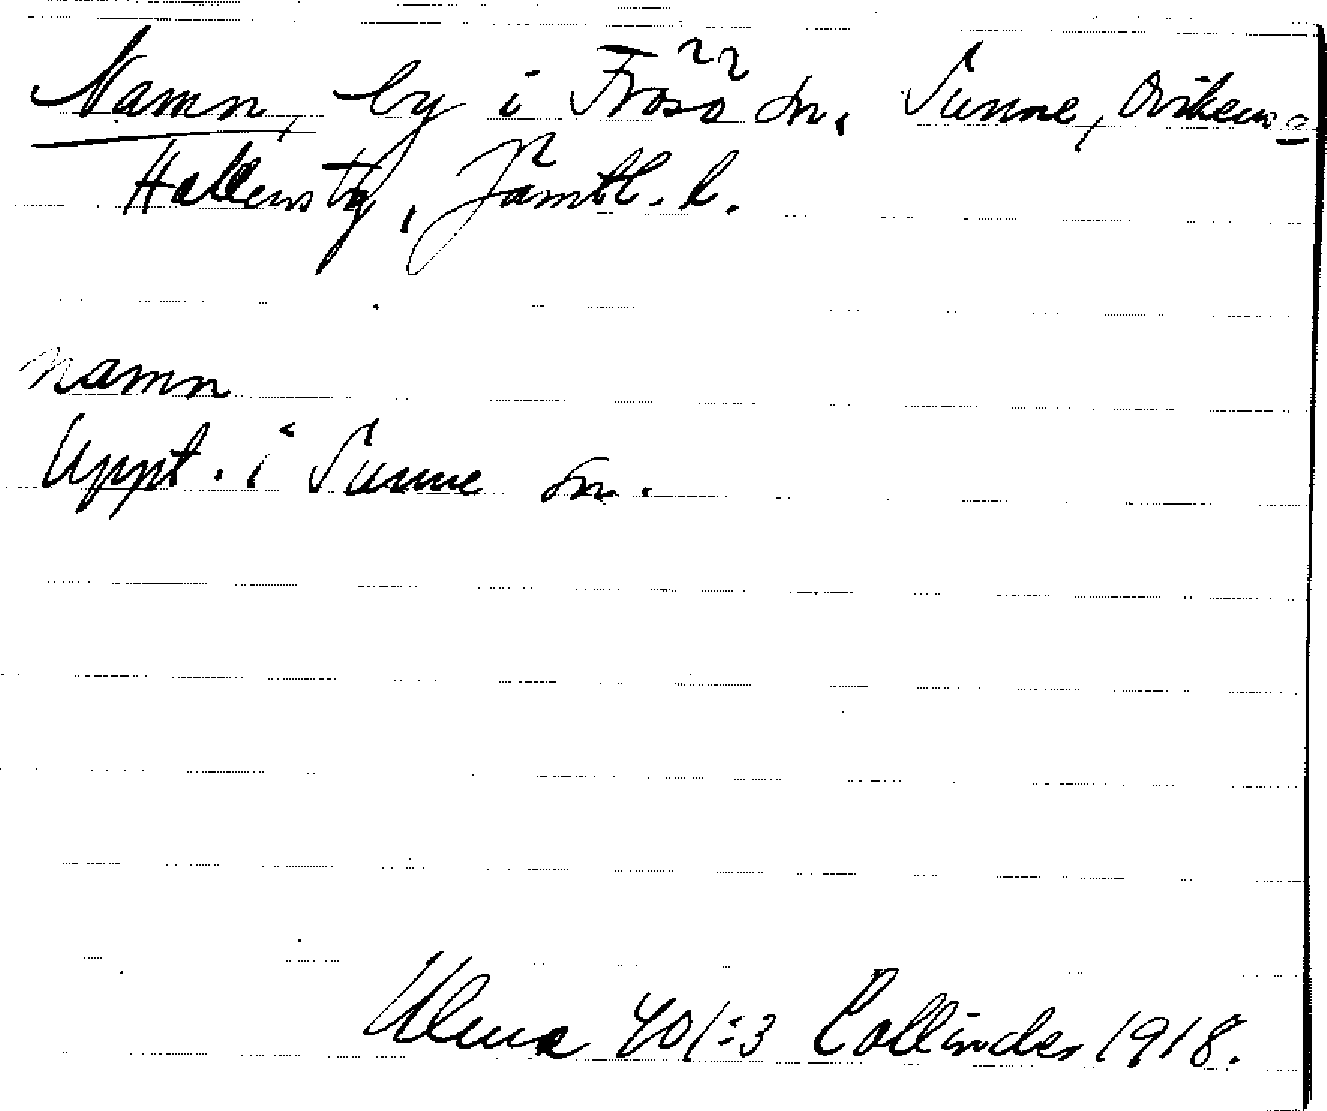 Namn, by i Frösö sn, Sunne, Oviken-
Hallens tg, Jämtl. l.
namn
Uppt. i Sunne sn.
Ulma 401:3 Collinder 1918.